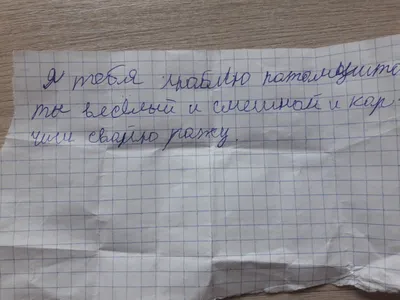 Я тебя люблю патомушто
ты весёлый и смешной и кор-
чиш свайю ражу